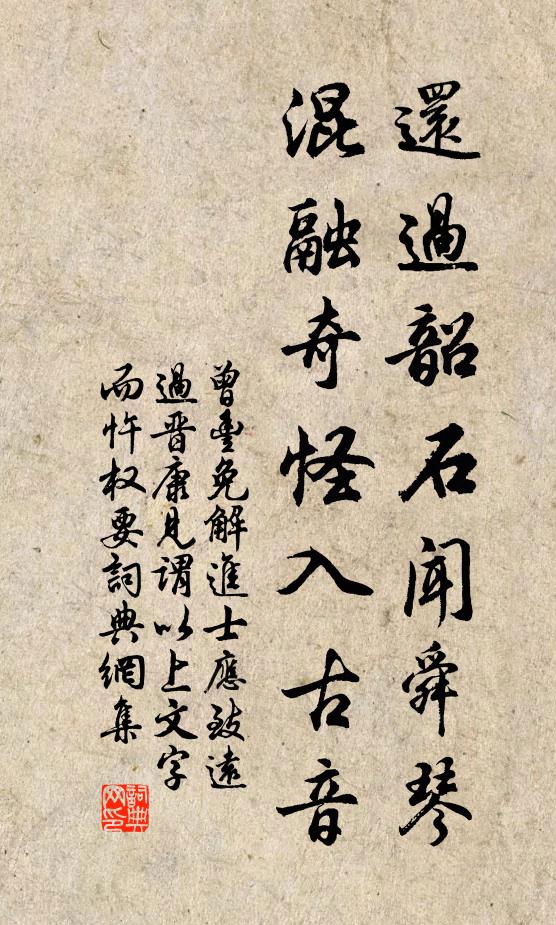 還過韶石聞舜琴
混融奇怪入古音
曾豐免解進士應致遠
過晋康見謂以上文字
而忤权要詞典網集
詞典网印